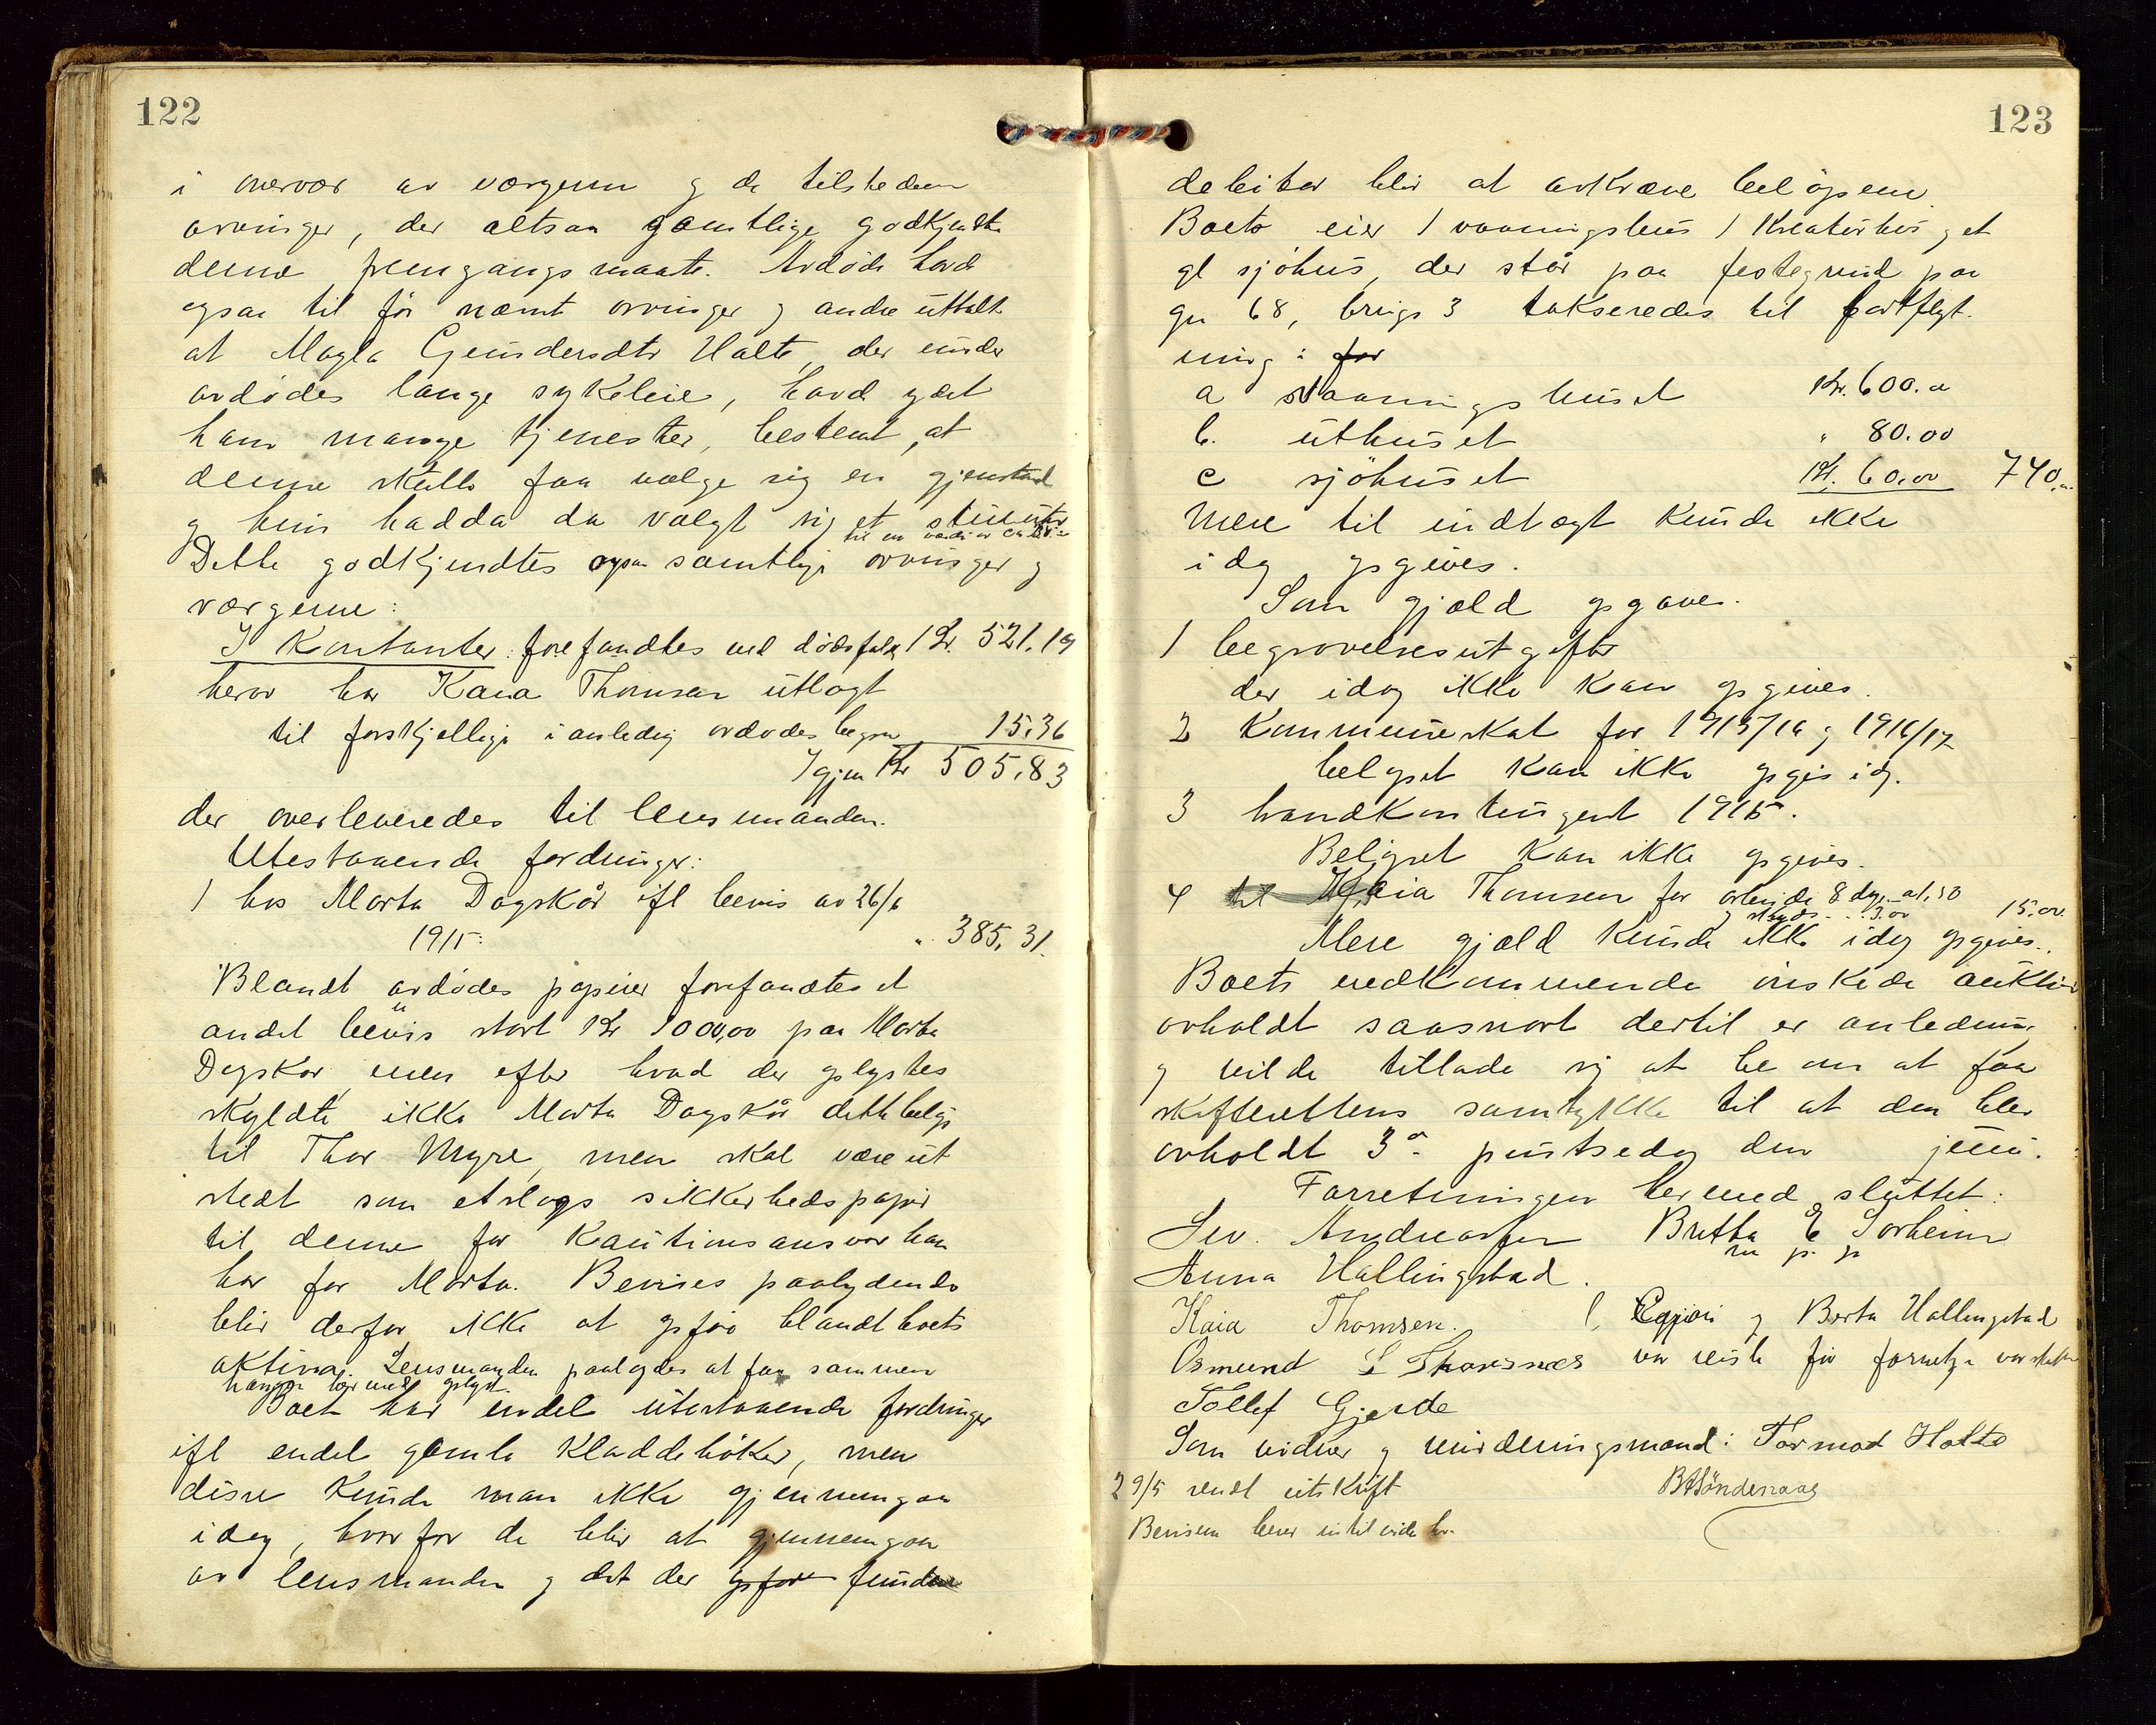 122
i overvær av værgerne og de tilstedeva
arvinger, der altsaa samtlige godkjendte
denne fremgangsmaate. Avdøde havde
ogsaa til før nævnte arvinger og andre uttalt
at Magla Gundersdtr Halte, der under
avdødes lange sykeleie, havde ydet
ham mange tjenester, bestemt, at
denne skulle faa vælge sig en gjenstand
og hun hadde da valgt sig et stueuhr
til en værdi av ca
Dette godkjendtes ogsaa samtlige arvinger og
værgerne:
I Kontanter: forefandtes ved dødsfaldet Kr. 521.19
herav har Kaia Thomsen utlagt
til forskjellige i anledng avdødes begra 15.36
Igjen Kr 505.83
der overleveredes til lensmanden.
Utestaaende fordringer:
1 hos Marta Dagskår ifl bevis av 26/6
1915: " 385.31.
Blandt avdødes papirer forefandtes et
andet bevis stort Kr 1000,00 paa Marta
Dagskar, men efter hvad der oplystes
skyldte ikke Marta Dagskår dette beløp
til Thor Myre, men skal være ut
stedt som etslags sikkerhedspapir
til denne for Kautionsansvar han
har for Marta. Bevises paalydende
blir derfor ikke at opføre blandt boets
aktiva. Lensmanden paalagdes at faa sammen
hængen hermed oplyst.
Boet har endel utestaaende fordringer
ifl endel gamle Kladdebøker, men
disse Kunde man ikke gjennemgaa
idag, hvorfor de blir at gjennemgaa
av lensmanden og det der opføre fundne
123
debitor blir at avkræve beløpene.
Boets eier 1 vaaningshus 1 Kreaturhus og et
gl sjøhus, der står paa festegrund paa
gn 68, brugs 3 takseredes til bortflyt.
ning: for
a vaaningshuset Kr. 600.00
b. uthuset " 80.00
c sjøhuset Kr. 60.00 740.00
Mere til indtægt Kunde ikke
idag opgives.
Som gjæld opgaves.
1 begravelsesutgifter
der idag ikke Kan opgives.
2 Kommuneskat for 1915/16 og 1916/17
beløpet Kan ikke opgis idag.
3 brandkontingent 1915.
Beløpet Kan ikke opgives.
4 til Kaia Thomsen for arbeide 8 dage a 1,50
og skyds . . 3.00 15.00.
Mere gjæld Kunde ikke idag opgives.
Boets vedkommende ønskede auktion
avholdt saasnart dertil er anledning
og vilde tillade sig at be om at faa
skifterettens samtykke til at den blev
avholdt 3die pintsedag den juni.
Forretningen hermed sluttet:
Sev. Andreassen Britta E Sørheim
m p. p
Anna Hallingstad.
Kaia Thomsen. og Berta Hallingstad
Osmund L Thorsnes var reist før forretn var sluttet
Tollef Gjerde
Som vidner og vurderingsmænd: Tormod Halte
29/5 sendt utskrift BASøndenaae
Beviserne beror intil vide hr.